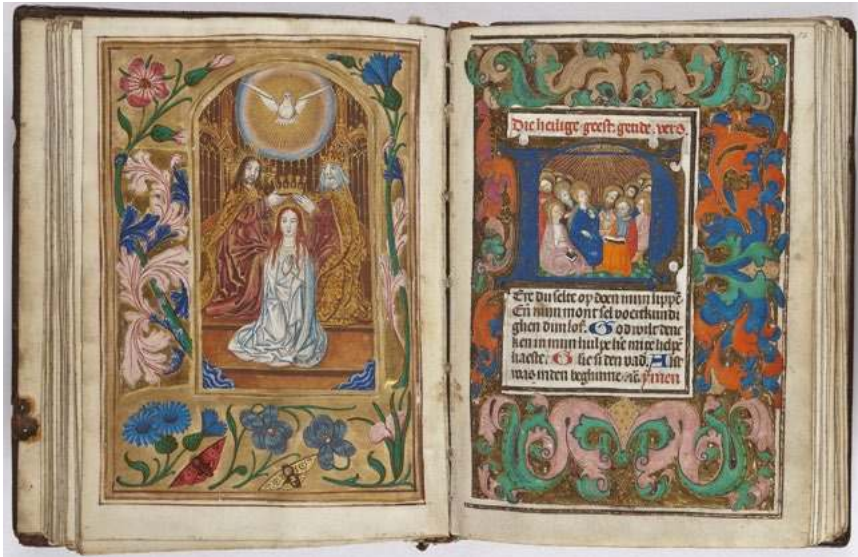 Die heilige · geest · getide · vers ·
H
Ere du selte op doen mijn lippē
Eñ mijn mont sel voertkundi
ghen dijn lof. God wilt denc
ken in mijn hulpe he mi te helpē
haeste. Glie si den vad. Alst
was inden beghinne eñ. Amen